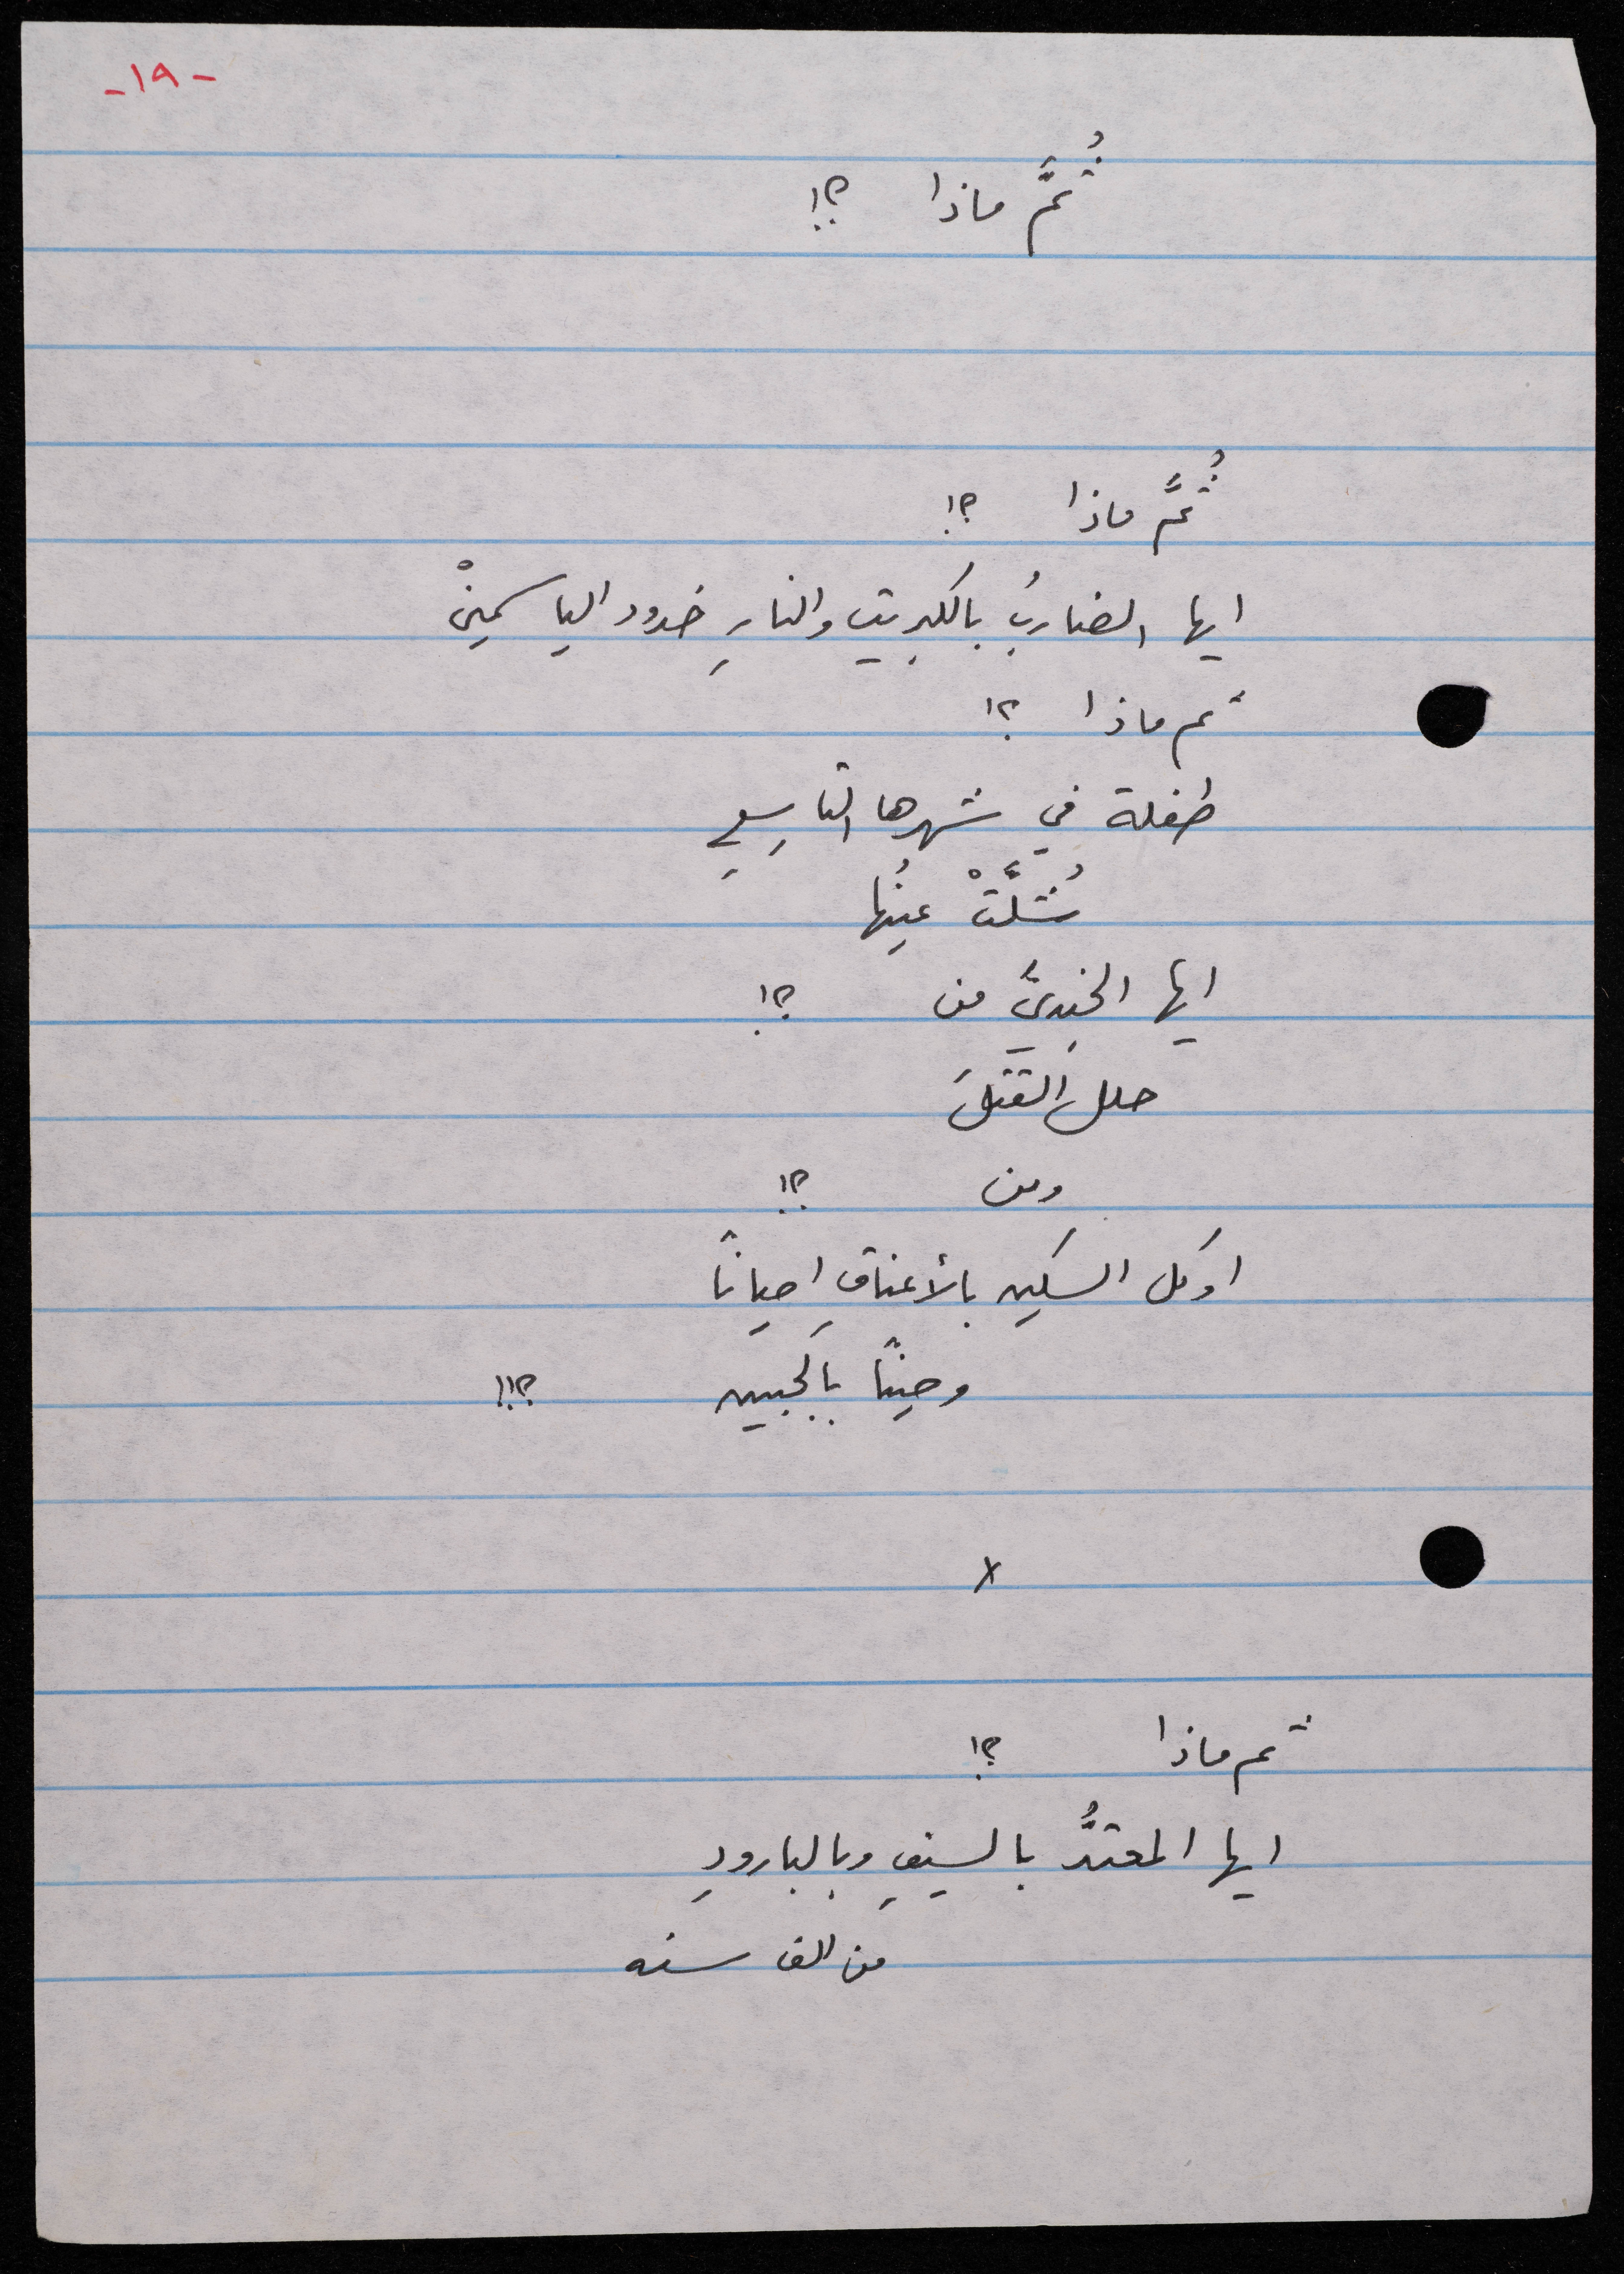 -١٩-
ثُمَّ ماذا ؟!
ثُمَّ ماذا ؟!
ايها الضاربُ بالكبريتِ والنارِ خدود الياسمينْ
ثم ماذا ؟!
طفلة في شهرها التاسِعِ
شُلَّتْ عينُها
ايها الجنديَّ من ؟!
حلل القتلَ
ومن ؟!
اوكل السكين بالأعناقِ احيانًا
وحينًا بالجبين ؟!!
x
ثم ماذا ؟!
ايها المعتدُّ بالسيفِ وبالبارودِ
من الف سنه